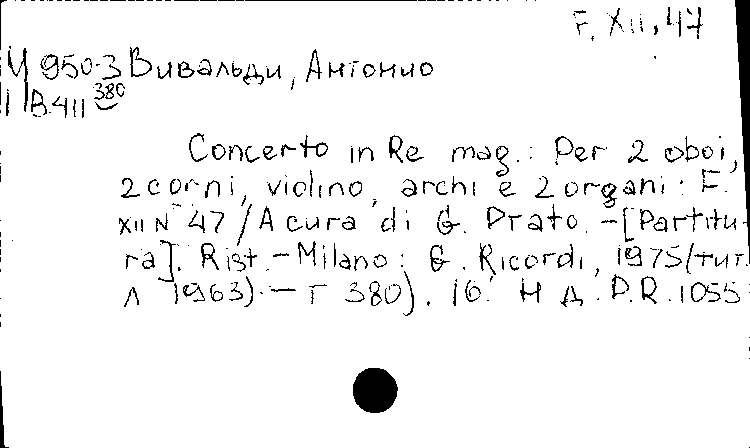 F. XII, 47
950-3 Вивальди, Антонио
В.411 380
Concerto in Re mag.: Per 2 oboi,
2 corni, violino, archi e 2 organi: F.
XII N 47 / A cura di G. Prato. - [Partitu-
ra]. Rist. - Milano: G. Ricordi, 1975 (тит.
л 1963). - Т 380). 16. Н Д. P.R. 1055